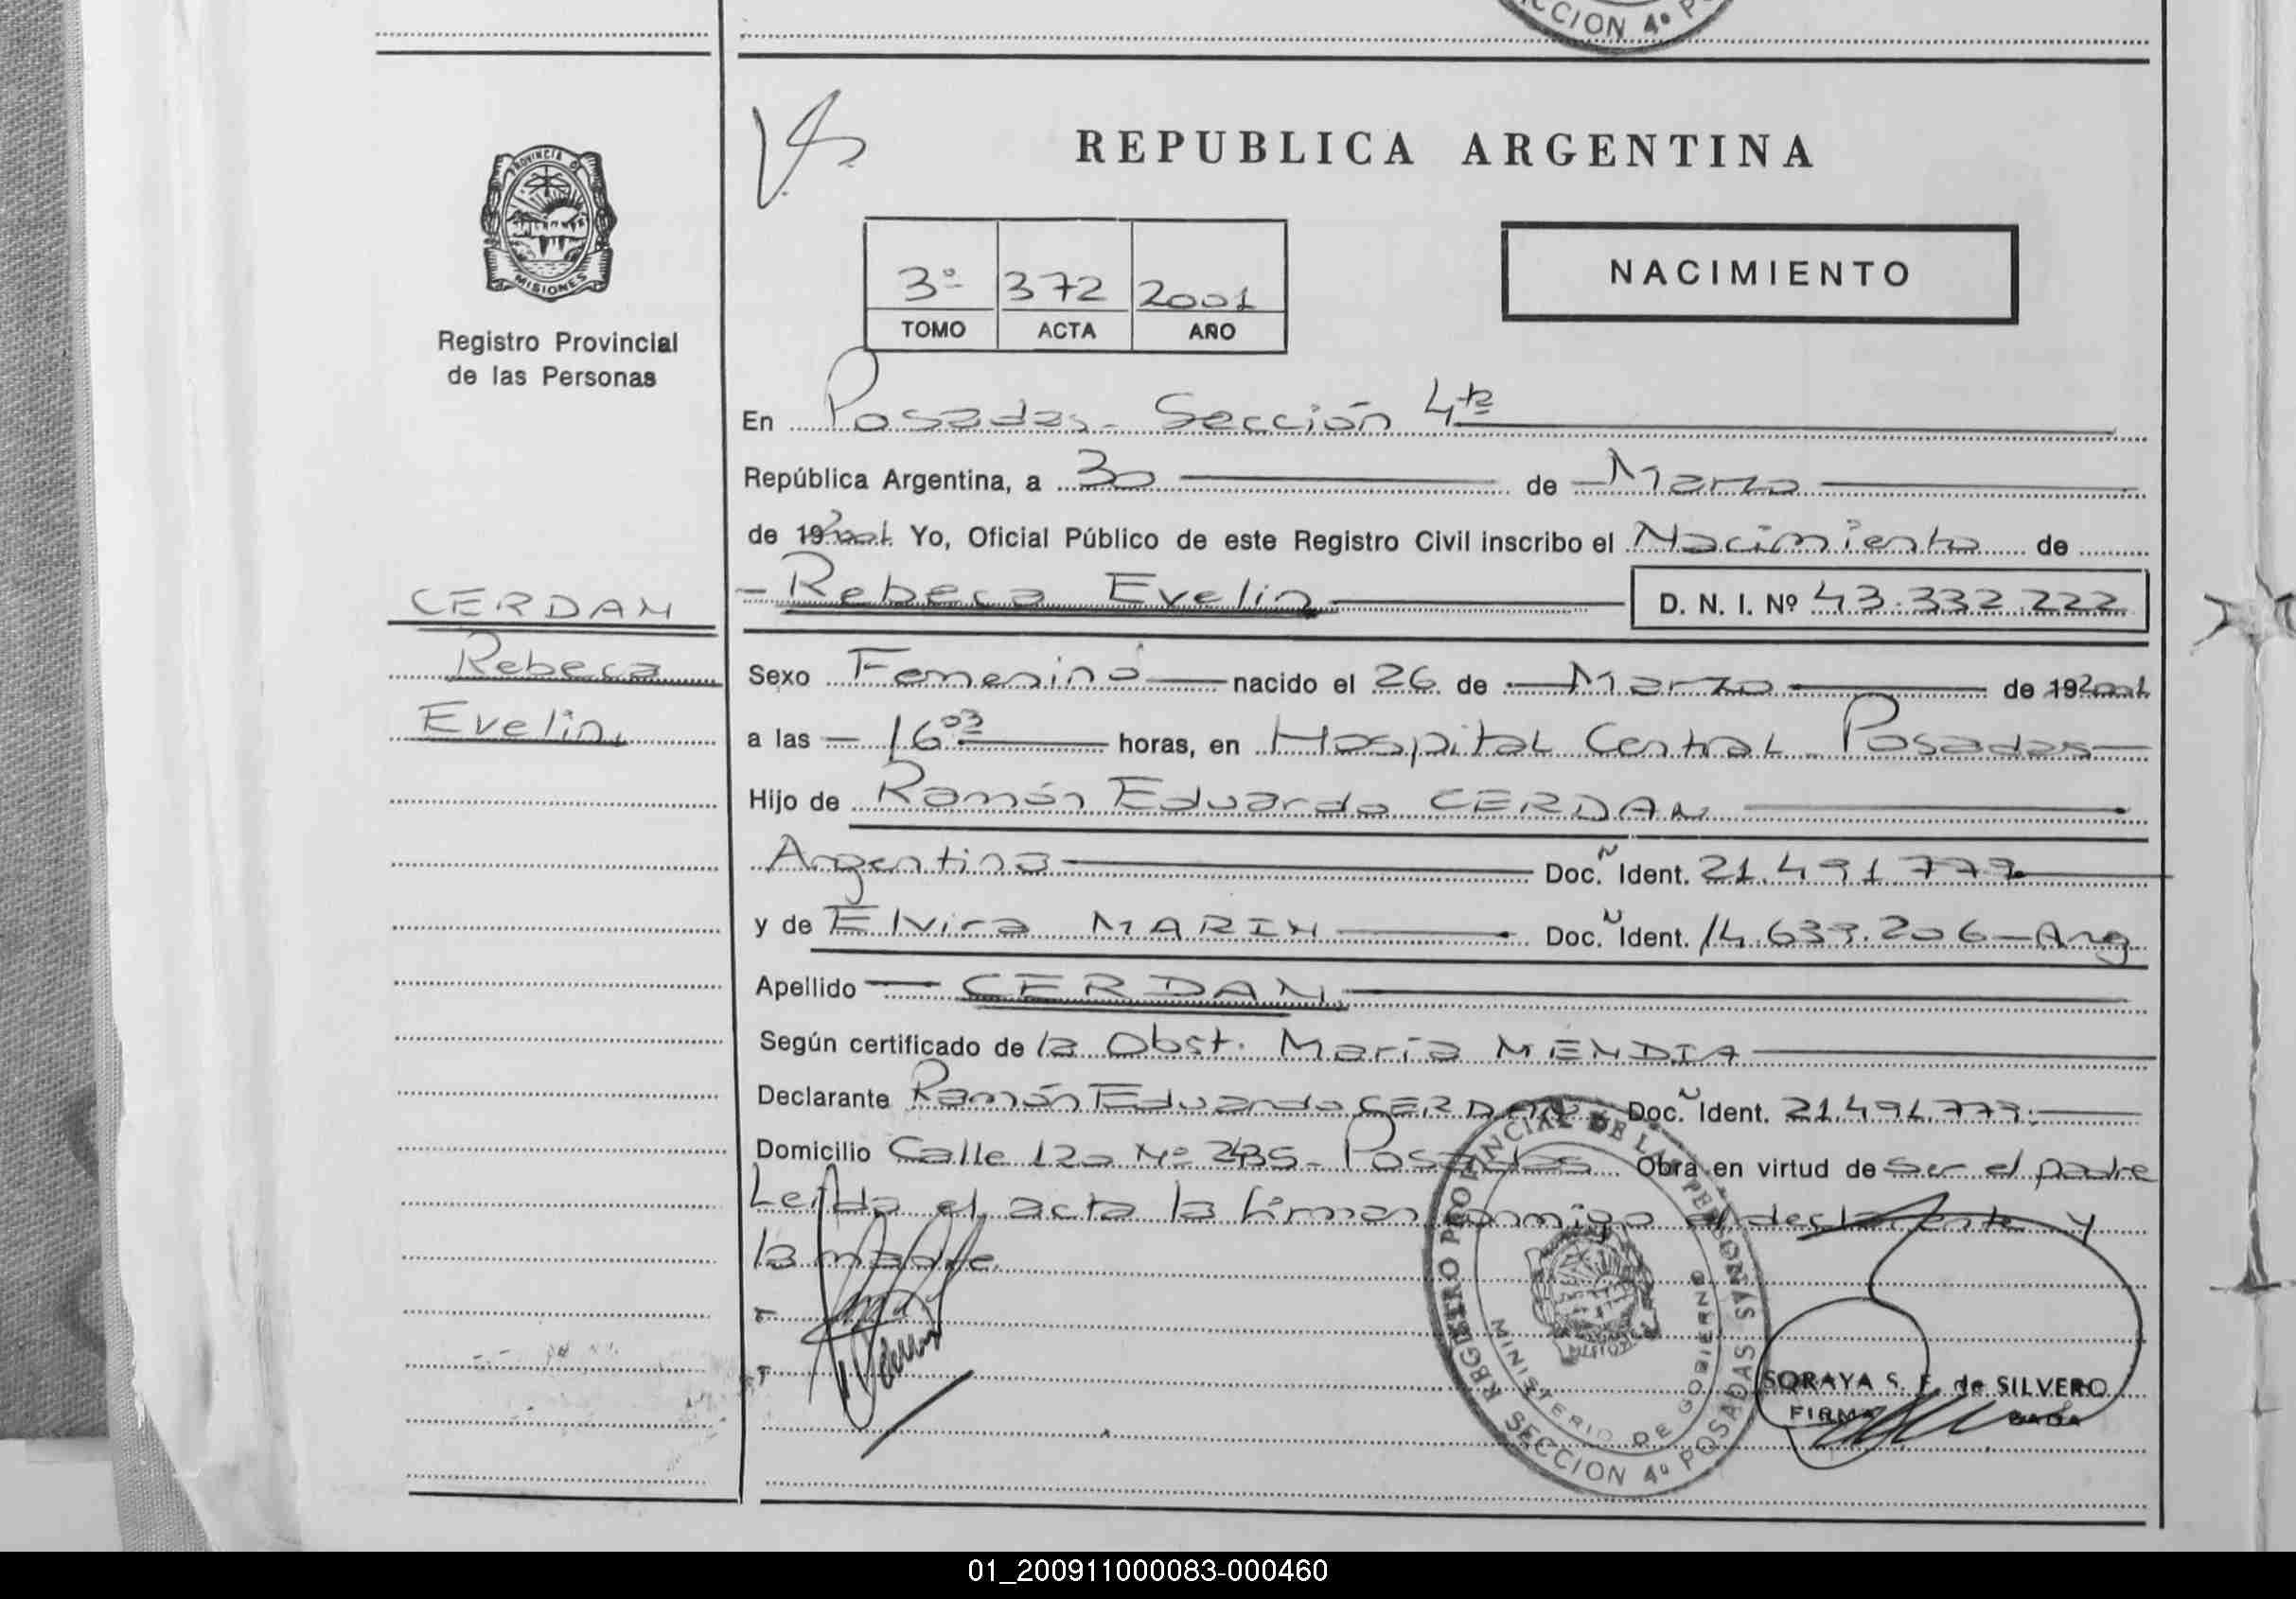 SECCION 4º P
PROVINCIA DE
MISIONES
Registro Provincial
de las Personas
CERDAN
Rebeca
Evelin
REPUBLICA ARGENTINA
3º 372 2001
TOMO ACTA AÑO
NACIMIENTO
En Posadas - Sección 4ta
República Argentina, a 30 de Marzo
de 19 2001 Yo, Oficial Público de este Registro Civil inscribo el Nacimiento de
Rebeca Evelin D. N. I. Nº 43.332.222
Sexo Femenino nacido el 26 de Marzo de 19 2001
a las 16 03 horas, en Hospital Central - Posadas
Hijo de Ramón Eduardo CERDAN
Argentina Doc. Ident. 21.491.779
y de Elvira MARIN Doc. Ident. 14.639.206 - Arg
Apellido CERDAN
Según certificado de la Obst. María MENDIA
Declarante Ramón Eduardo CERDAN Doc. Ident. 21.491.779
Domicilio Calle 120 Nº 2435 - Posadas Obra en virtud de ser el padre
Leída el acta la firman conmigo el declarante y
la madre.
REGISTRO PROVINCIAL DE LAS PERSONAS
MINISTERIO DE GOBIERNO
SECCION 4º POSADAS
SORAYA S. F. de SILVERO
FIRMA
01_200911000083-000460